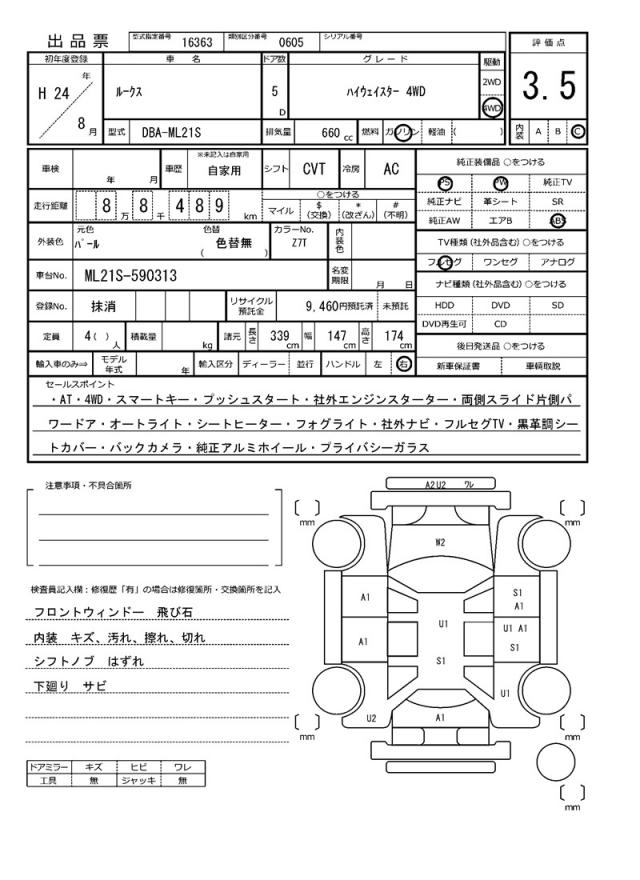 出品票 型式指定番号 16363 類別区分番号 0605 シリアル番号
評価点
3.5
内装 A B C
初年度登録 車名 ドア数 グレード 駆動
H 24 年 8 月
ルークス
5 D
ハイウェイスター 4WD
2WD
4WD
型式 DBA-ML21S 排気量 660 cc 燃料 ガソリン 軽油 ( )
車検 年 月 車歴 ※未記入は自家用 自家用 シフト CVT 冷房 AC
走行距離 8 万 8 千 4 8 9 km
○をつける
マイル $ (交換) * (改ざん) # (不明)
外装色 元色 パール 色替 ( 色替無 ) カラーNo. Z7T 内装色
車台No. ML21S-590313 名変期限 月 日
登録No. 抹消 リサイクル預託金 9,460円預託済 未預託
定員 4( ) 人 積載量 kg 諸元 長さ 339 cm 幅 147 cm 高さ 174 cm
輸入車のみ⇒ モデル年式 年 輸入区分 ディーラー 並行 ハンドル 左 右
純正装備品 ○をつける
PS PW 純正TV
純正ナビ 革シート SR
純正AW エアB ABS
TV種類 (社外品含む) ○をつける
フルセグ ワンセグ アナログ
ナビ種類 (社外品含む) ○をつける
HDD DVD SD
DVD再生可 CD
後日発送品 ○をつける
新車保証書 車輌取説
セールスポイント
・AT・4WD・スマートキー・プッシュスタート・社外エンジンスターター・両側スライド片側パ
ワードア・オートライト・シートヒーター・フォグライト・社外ナビ・フルセグTV・黒革調シー
トカバー・バックカメラ・純正アルミホイール・プライバシーガラス
注意事項・不具合箇所
検査員記入欄：修復歴「有」の場合は修復箇所・交換箇所を記入
フロントウィンドー 飛び石
内装 キズ、汚れ、擦れ、切れ
シフトノブ はずれ
下廻り サビ
ドアミラー キズ ヒビ ワレ
工具 無 ジャッキ 無
A2 U2 ワレ
mm
mm
W2
A1
S1
A1
U1
U1 A1
A1
S1
S1
U1
U2
A1
mm
mm
mm